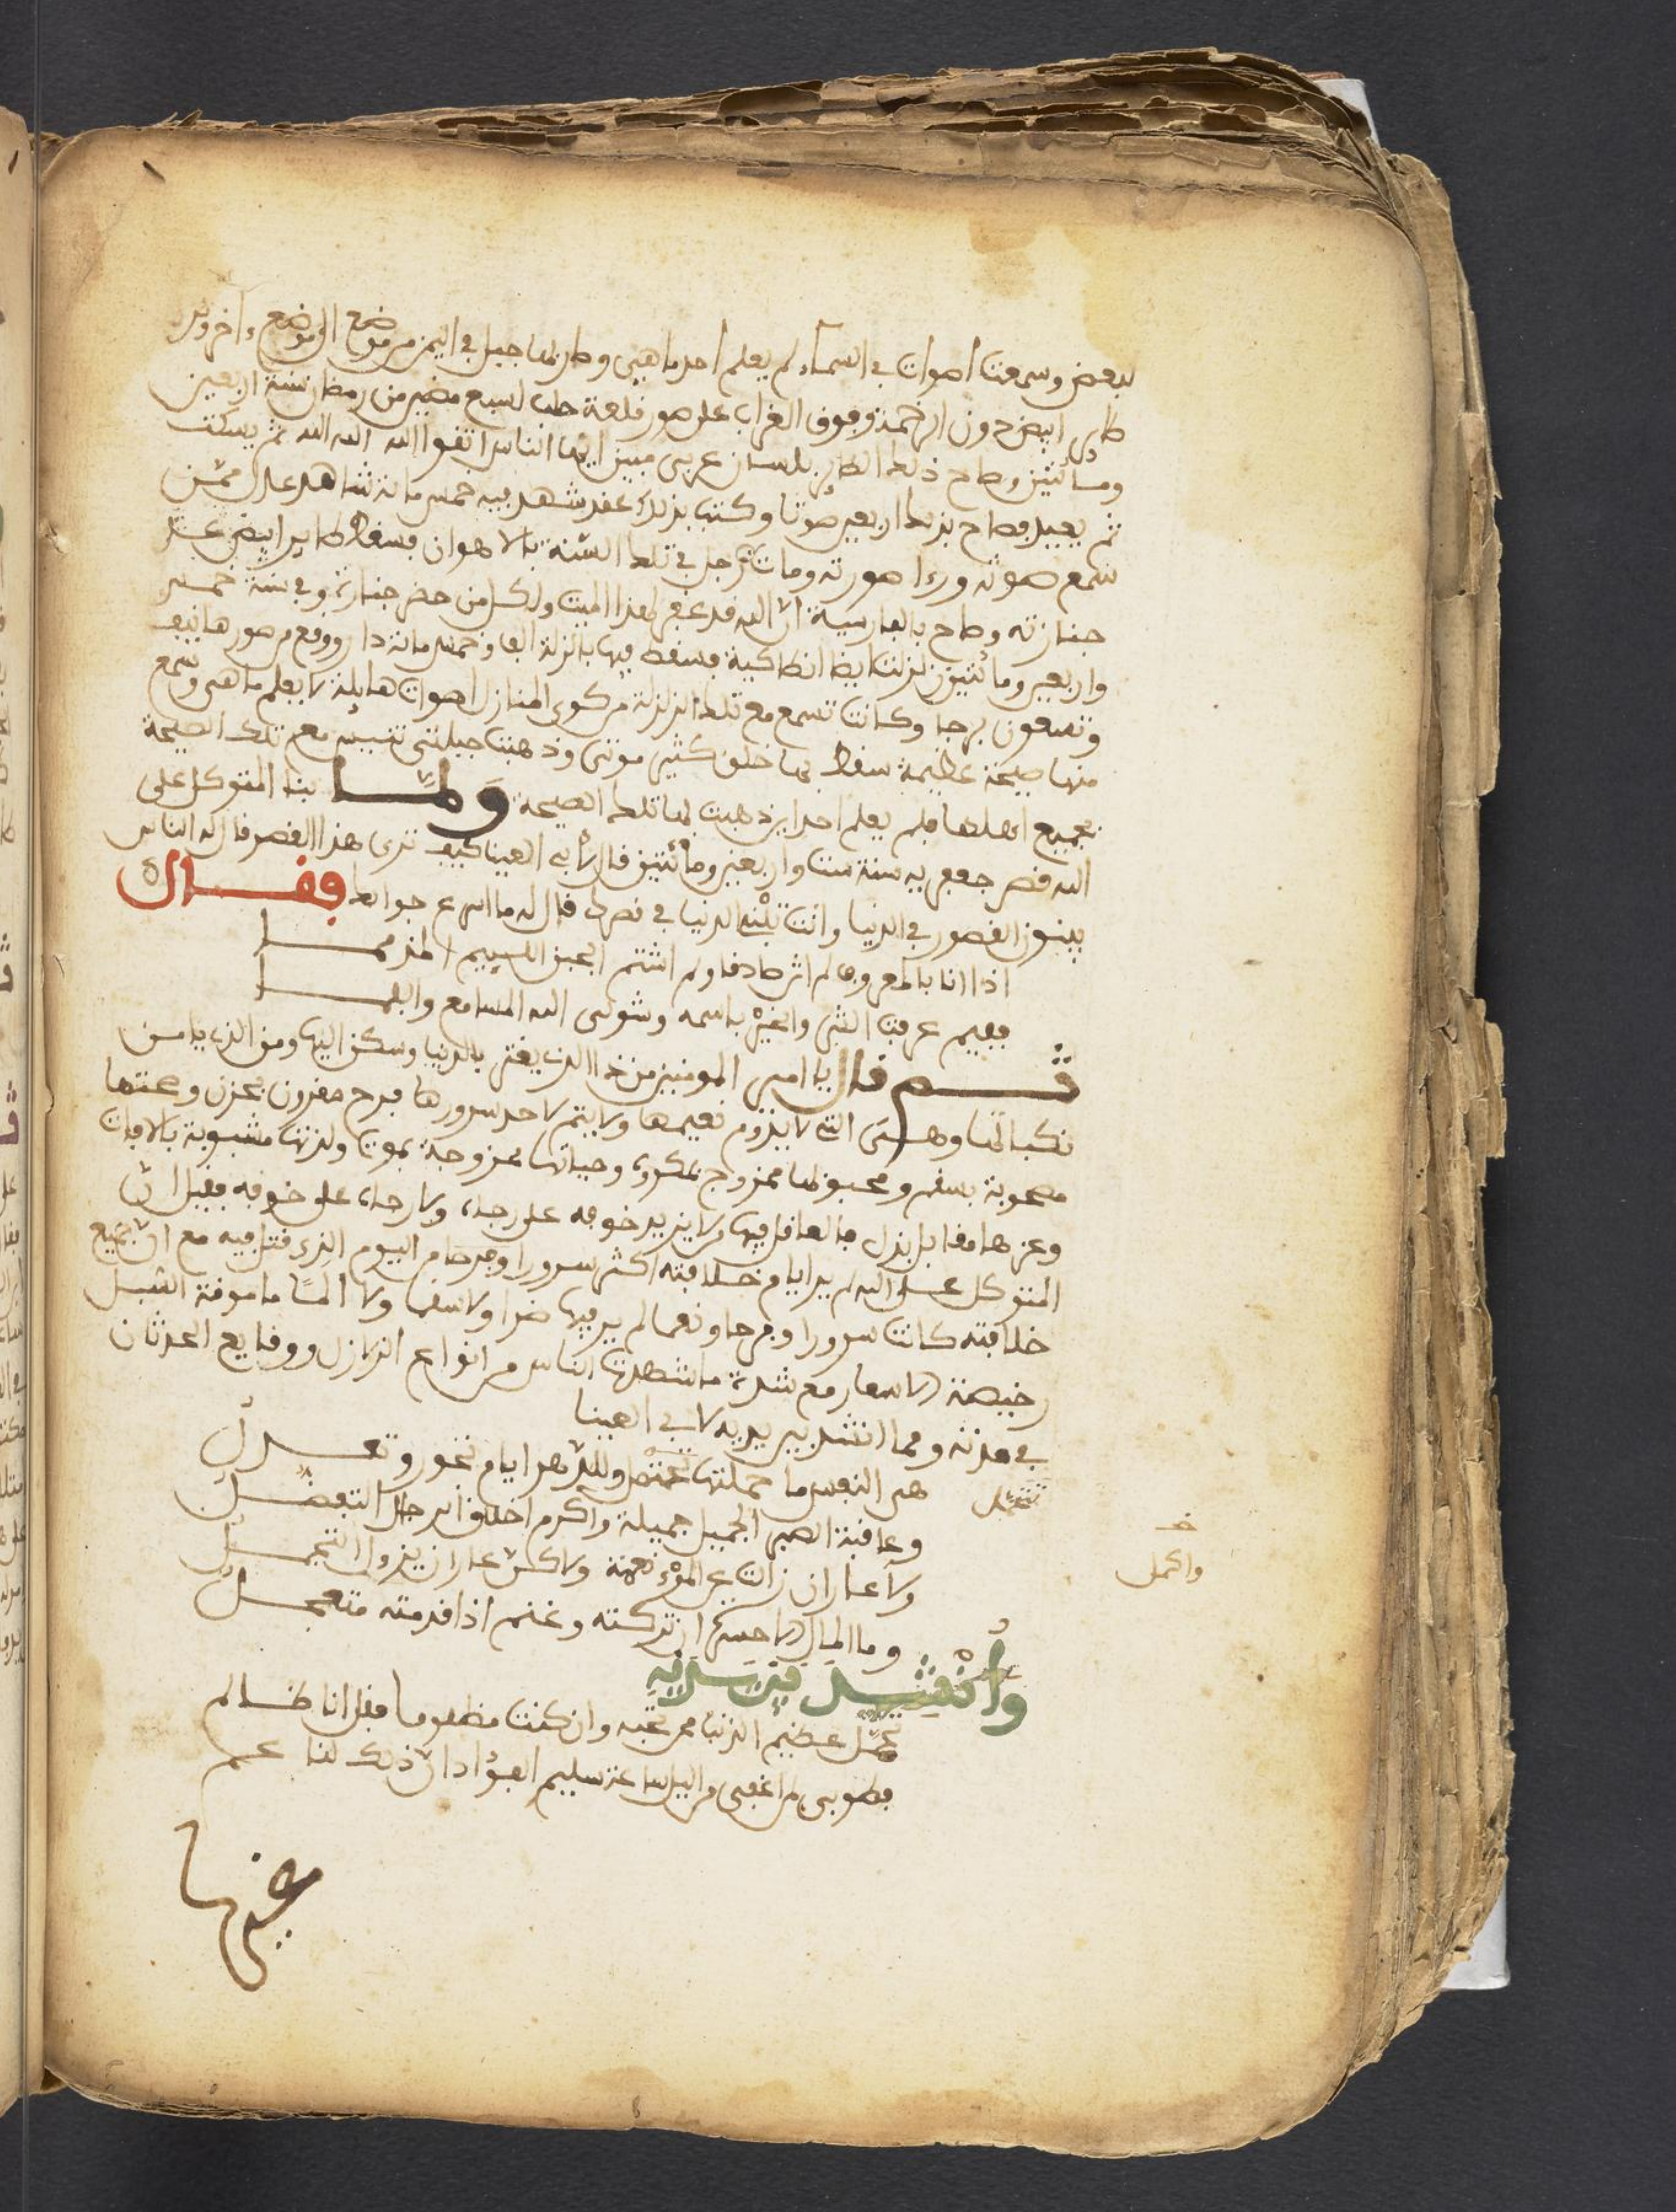 لبعض وسمعت اصوات في السماء لم يعلم احد ما هي وطار بها جبل في اليمن من موضع الى موضع واخر وقد
طاير ابيض دون الرخمة وفوق الغراب على سور قلعة حلب لسبع مضين من رمضان سنة اربعين
ومائتين وصاح ذلك الطاير بلسان عربي مبين ايها الناس اتقوا الله الله الله ثم يسكت
ثم يعيد فصاح بذلك اربعين صوتا وكتب بذلك عقد شهد فيه خمس مائة شاهد عدل ممن
سمع صوته وراء صورته ومات رجل في تلك السنة بالاهواز فسقط طاير ابيض على
جنازته وصاح بالفارسية ان الله قد غفر لهذا الميت ولكل من حضر جنازته وفي سنة خمس
واربعين ومائتين زلزلت ايضا انطاكية فسقط فيها بالزلزلة الف وخمس مائة دار ووقع من سورها نيف
وتسعون برجا وكانت تسمع مع تلك الزلزلة من كوى المنازل اصوات هايلة لا يعلم ما هي وسمع
منها صيحة عظيمة سقط بها خلق كثير موتى وذهبت جبلتى تنيس مع تلك الصيحة
بجميع اهلها فلم يعلم احد اين ذهبت بها تلك الصيحة ولما بنا المتوكل على
الله قصر جعفر به سنة ست واربعين ومائتين قال لأبي العينا كيف ترى هذا القصر قال له الناس
يبنون القصور في الدنيا وانت تبنى الدنيا في قصرك قال له ما اسرع جوابك فقال
اذا انا بالمعروف لم اثن صادقا ولم اشتم الجبس اللئيم المذمما
ففيم عرفت الشر والخير باسمه وشق لى الله المسامع والفما
ثم قال يا امير المومنين من ذا الذي يغتر بالدنيا وسكن اليها ومن الذي يامن
نكباتها وهي التي لا يدوم نعيمها ولا يتم لاحد سرورها فرح مقرون بحزن وصحتها
مصحوبة بسقم ومحبوبها ممزوج بمكروه وحياتها ممزوجة بموت ولذتها مشوبة بالافات
وعزها مقابل بذل فالعاقل فيها لا يزيد خوفه على رجاه ولا رجاه على خوفه فقيل ان
المتوكل على الله لم ير ايام خلافته اكثر سرورا وفرحا من اليوم الذي قتل فيه مع ان جميع
خلافته كانت سرورا وفرحا ونعما لم ير فيها ضرا ولا سقما ولا الما مامونة السبل
رخيصة الاسعار مع شدة ما شهدتها الناس من انواع الزلازل ووقايع الحدثان
في مدته ومما انشد بين يديه لابي العينا
هي النفس ما حملتها تتحمل وللدهر ايام تجور وتعدل
تتحمل
وعاقبة الصبر الجميل جميلة واكرم اخلاق الرجال التفضل
واكمل
ولا عار ان زالت عن المرء نعمة ولاكن عار ان يزول التجمل
وما المال الا حسرة ان تركته وغنم اذا قدمته متعجل
وأنشد من سلافه
تحمل عظيم الذنب ممن تحبه وان كنت مظلوما فقل انا ظالم